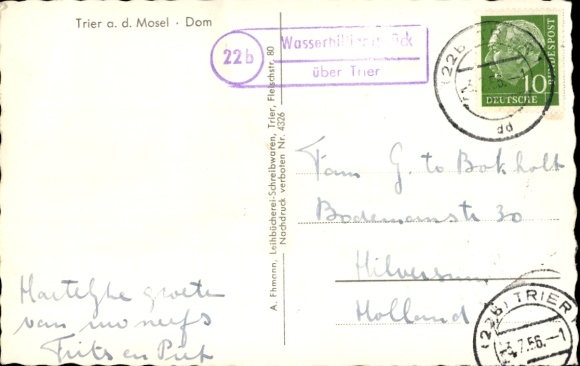 Trier a. d. Mosel · Dom
22b
Wasserbilligerbrück
über Trier
(22b)
dd
DEUTSCHE BUNDESPOST
10
A. Ehmann, Leihbücherei-Schreibwaren, Trier, Fleischstr. 80
Nachdruck verboten Nr. 4326
Fam G. te Bokholt
Bodemanstr 30
Hilversum
Holland
Hartelijke groeten
van uw neefs
Frits en Piet
(22b) TRIER
7.56.–1